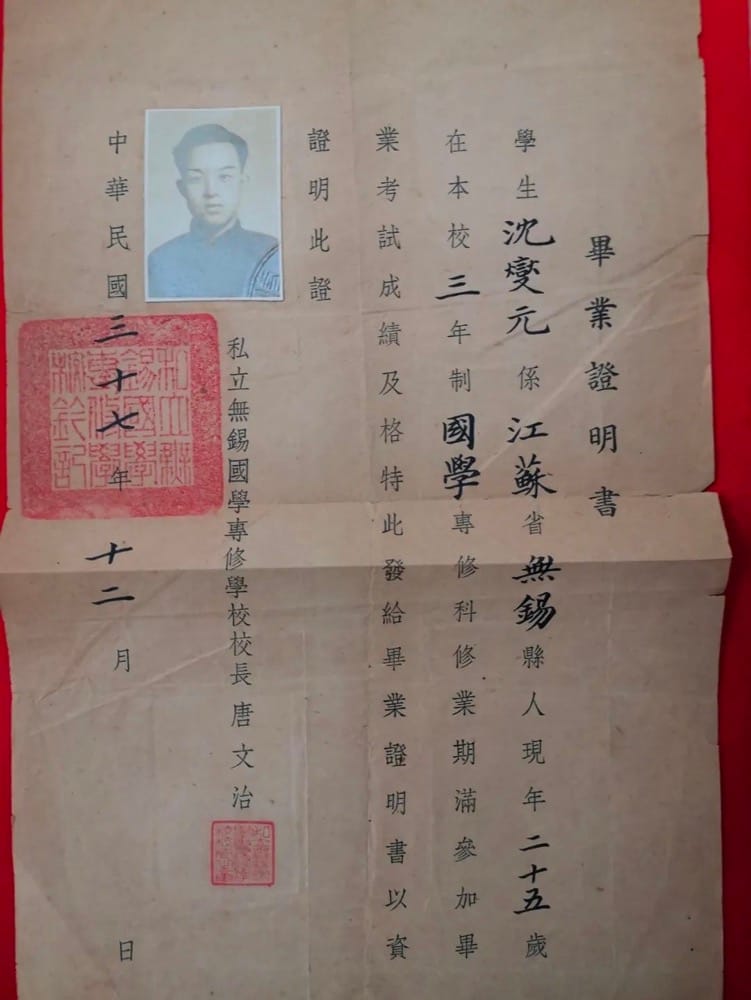 畢業證明書
學生沈燮元係江蘇省無錫縣人現年二十五歲
在本校三年制國學專修科修業期滿參加畢
業考試成績及格特此發給畢業證明書以資
證明此證
私立無錫國學專修學校校長唐文治
中華民國三十七年十二月日